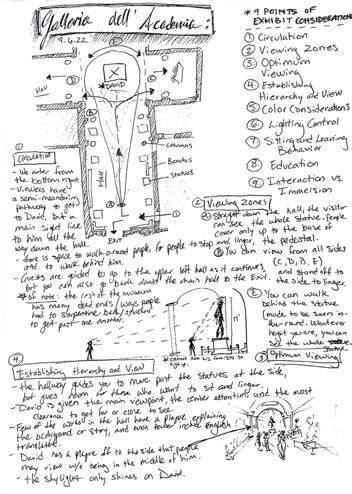 Galleria dell' Academia:
9.6.22
* 9 POINTS OF
EXHIBIT CONSIDERATION
① Circulation
② Viewing Zones
③ Optimum
Viewing
④ Establishing
Hierarchy and View
⑤ Color Considerations
⑥ Lighting Control
⑦ Sitting and Leaving
Behavior
⑧ Education
⑨ Interaction vs.
Immersion
X
*DAVID
Nav
Hall
COLUMNS
Benches
Statues
EXIT
①
Circulation
- We enter from
the bottom right
- Viewers have
a semi-meandering
pathway to get
to David, but a
main sight line
to him all the
way down the hall.
- there is space to walk around people, for people to stop and linger,
and to walk behind him.
- Guests are guided to go to the upper left hall as it continues,
but you can also go back down the main hall to the Exit.
* of note: the rest of the museum
has many dead ends/ways people
had to serpentine back/
to get past one another.
② Viewing Zones
Ⓐ Straight down the hall, the visitor
can see the whole statue. people
cover only up to the base of
the pedestal.
Ⓑ You can view from all sides
(C, D, B, E)
and stand off to
the side to linger.
Ⓔ You can walk
behind the statue
(made to be seen in-
the-round. Whatever
height you are, you can
see the whole statue.
③ Optimum Viewing
4.
Establishing Hierarchy and View
- the hallway guides you to move past the statues at the side,
but gives room for those who want to sit and linger.
- David is given the main viewpoint, the center attention, and the most
clearance to get far or close to see.
- Few of the works in the hall have a plaque explaining
the background or story, and even fewer include English
translation.
- David has a plaque off to the side that people
may view w/o being in the middle of him.
- the skylight only shines on David.